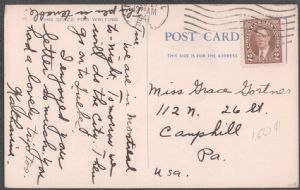 THIS SPACE FOR WRITING
we are in Montreal
to-night. Tomorrow we
will do the City. Then
go on to
I enjoyed your
letter so much. You
had a lovely trip too.
Kathleen.
AM
POST CARD
THIS SIDE IS FOR THE ADDRESS
2
Miss Grace Gortner
112 N. 26 St
Camphill
Pa.
U.S.A.